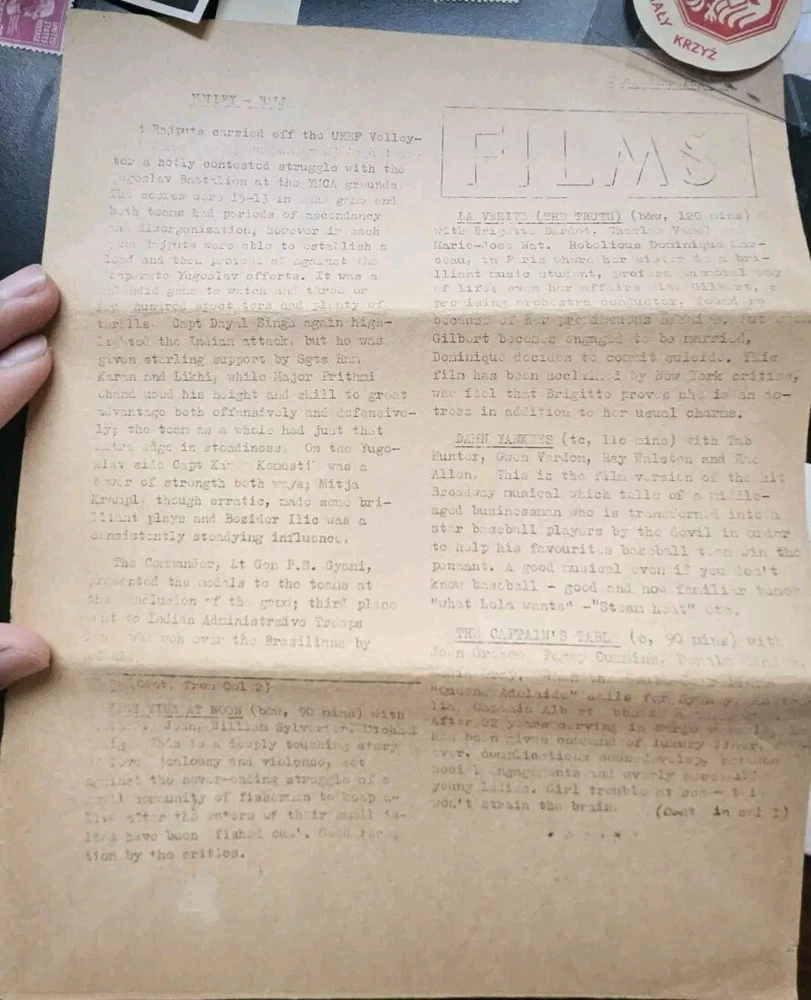 UNITED STATES POSTAGE
MAŁY KRZYŻ
VOLLEY - BALL
Rajputs carried off the UNEF Volley-
a hotly contested struggle with the
Yugoslav Battalion at the YMCA grounds.
The scores were 15-13 in each game and
both teams had periods of ascendancy
and disorganisation, however in each
game Rajputs were able to establish a
lead and then protect it against the
desperate Yugoslav efforts. It was a
splendid game to watch and three or
four hundred spectators had plenty of
thrills. Capt Dayal Singh again high-
lighted the Indian attack, but he was
given sterling support by Sgts Ram
Karan and Likhi, while Major Prithmi
Chand used his height and skill to great
advantage both offensively and defensive-
ly; the team as a whole had just that
extra edge in steadiness. On the Yugo-
slav side Capt was a
tower of strength both ways; Mitja
Krampl, though erratic, made some bri-
lliant plays and Bozidor Ilic was a
consistently steadying influence.
The Commander, Lt Gen P.S. Gyani,
presented the medals to the teams at
the conclusion of the game; third place
went to Indian Administraive Troops
won over the Brazilians by
(Cont. from Col 2)
HIGH TIDE AT NOON (b&w, 90 mins) with
William Sylvester, Michael
Craig. This is a deeply touching story
of love, jealousy and violence, set
against the never-ending struggle of a
small community of fishermen to keep a-
live after the waters of their small is-
land have been 'fished out'.
tion by the critics.
FILMS
LA VERITE (THE TRUTH) (b&w, 120 mins)
with Brigitte Bardot, Charles Vanel and
Marie-Jose Nat. Rebelious Dominique Mar-
ceau, in Paris where her sister is a bri-
lliant music student, prefers an amoral way
of life; even her affairs with Gilbert, a
promising orchestra conductor, founders
because of her But
Gilbert becomes engaged to be married,
Dominique decides to commit suicide. This
film has been acclaimed by New York critics,
who feel that Brigitte proves she is an ac-
tress in addition to her usual charms.
DAMN YANKEES (tc, 110 mins) with Tab
Hunter, Gwen Verdon, Ray Walston and Rae
Allen. This is the film version of the hit
Broadway musical which tells of a middle-
aged businessman who is transformed into a
star baseball players by the devil in order
to help his favourites baseball team win the
pennant. A good musical even if you don't
know baseball - good and now familiar tunes
"what Lola wants" -"Steam heat" etc.
THE CAPTAIN'S TABLE (c, 90 mins) with
John Gregson, Peggy Cummins, Donald Sinden
"Queen Adelaide" sails for Sydney, Austra-
lia, Captain
After 22 years serving in cargo vessels, he
had been given command of luxury liner. How-
ever, complications soon develop, between
social engagements and overly
young ladies. Girl trouble at sea -
won't strain the brain. (Cont. in col 1)